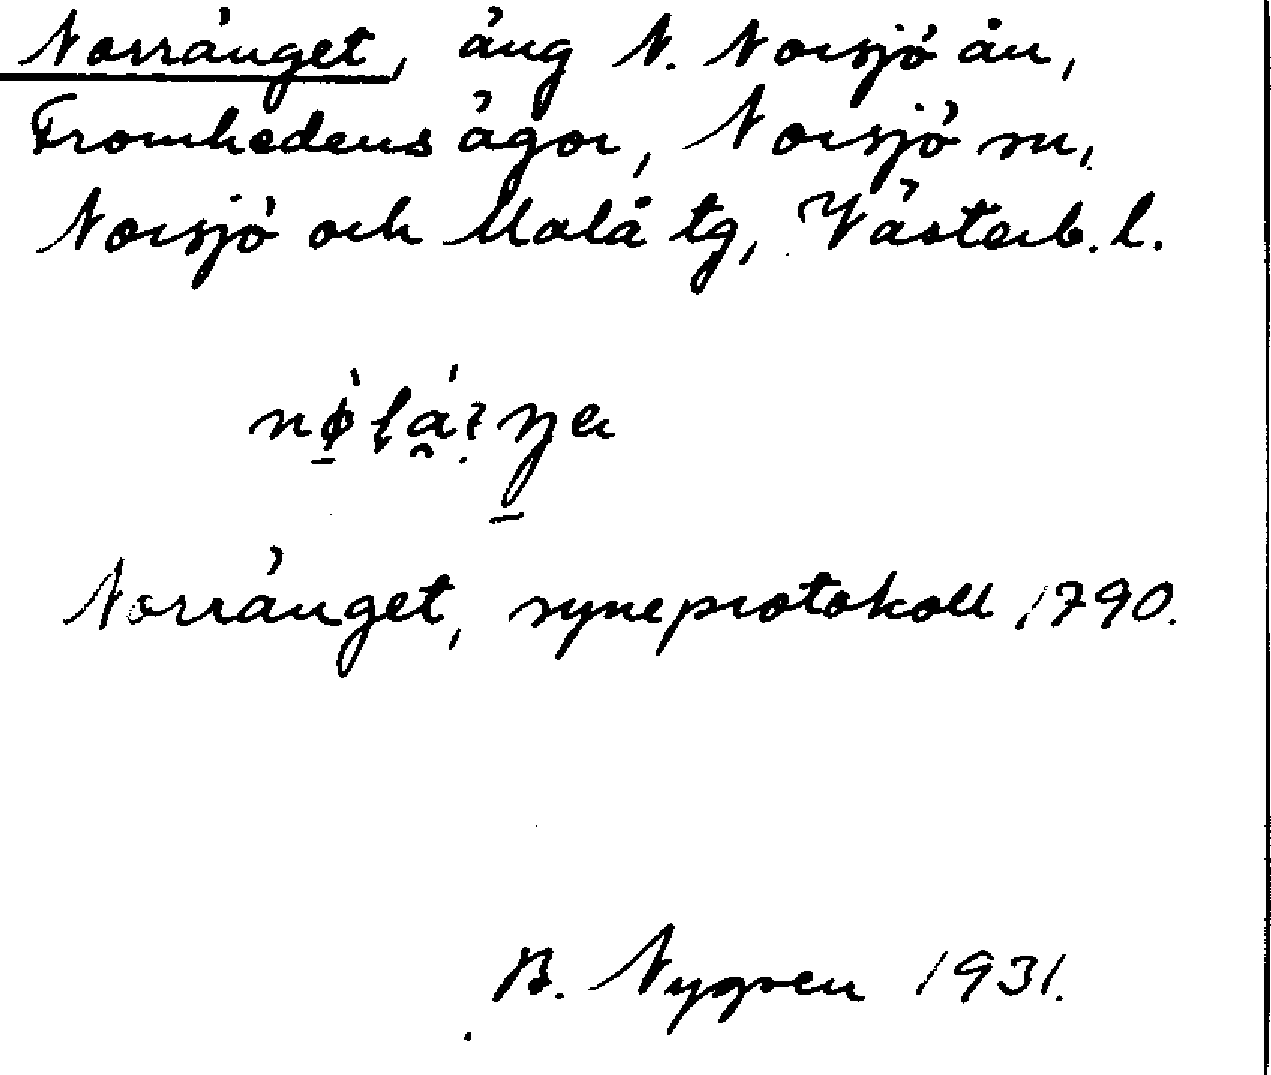 Norränget, äng N. Norsjö ån,
Fromhedens ägor, Norsjö sn,
Norsjö och Malå tg, Västerb. l.
Norränget, syneprotokoll 1790.
B. Nygren 1931.